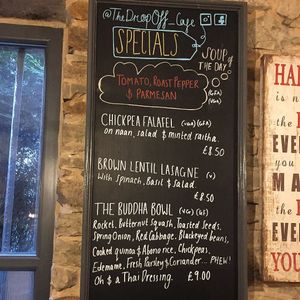 @TheDropOff_Cafe
SPECIALS
SOUP OF
THE DAY
TOMATO, ROAST PEPPER
& PARMESAN
CHICKPEA FALAFEL
on naan, salad & minted raitha.
£8.50
BROWN LENTIL LASAGNE (v)
With spinach, Basil & salad.
£8.50
THE BUDDHA BOWL
Rocket, Butternut squash, Toasted Seeds,
Spring Onion, Red Cabbage, Blackeyed beans,
Cooked quinoa & Abono rice, Chickpeas,
Edemame, Fresh Parsley & Coriander... PHEW!
Oh & a Thai Dressing. £9.00
HA
is n
the
EVE
you
MA
the
EVE
YOU